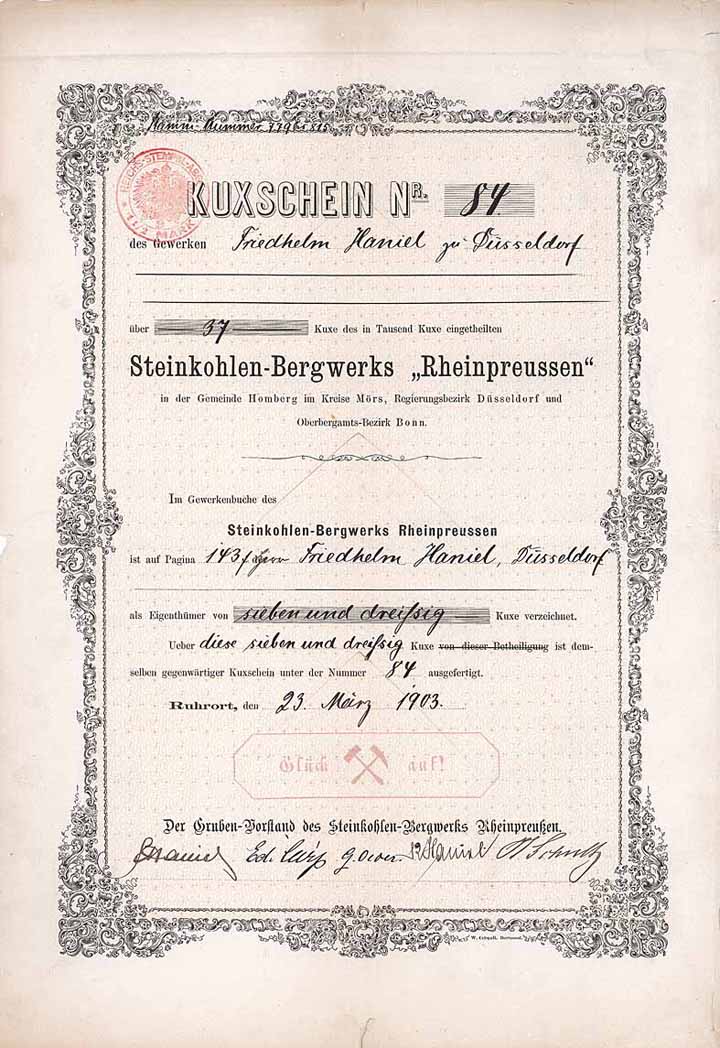 Nummer 779 bis 815
REICHS-STEMPEL-ABGABE
1 1/2 MARK
KUXSCHEIN NR. 84
des Gewerken Friedhelm Haniel zu Düsseldorf
über 37 Kuxe des in Tausend Kuxe eingetheilten
Steinkohlen-Bergwerks „Rheinpreussen“
in der Gemeinde Homberg im Kreise Mörs, Regierungsbezirk Düsseldorf und
Oberbergamts-Bezirk Bonn.
Im Gewerkenbuche des
Steinkohlen-Bergwerks Rheinpreussen
ist auf Pagina 143 f Herr Friedhelm Haniel, Düsseldorf
als Eigenthümer von sieben und dreißig Kuxe verzeichnet.
Ueber diese sieben und dreißig Kuxe von dieser Betheiligung ist dem-
selben gegenwärtiger Kuxschein unter der Nummer 84 ausgefertigt.
Ruhrort, den 23. März 1903.
Glück auf!
Der Gruben-Vorstand des Steinkohlen-Bergwerks Rheinpreußen.
Haniel Ed. Haniel